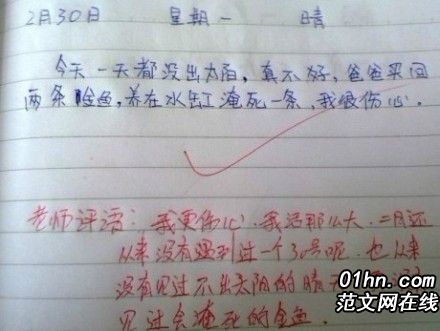 2月30日 星期一 晴
今天一天都没出太阳，真不好，爸爸买回
两条金鱼，养在水缸淹死一条，我很伤心．
老师评语：我更伤心．我活那么大．二月还
从来没有遇到过一个30号呢．也从来
没有见过不出太阳的晴天
见过会淹死的金鱼．
01hn.com
范文网在线